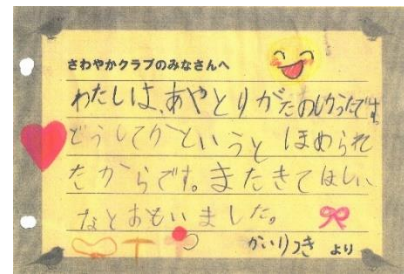 さわやかクラブのみなさんへ
わたしは、あやとりがたのしかったです。
どうしてかというと ほめられ
たからです。またきてほしい
なとおもいました。
より